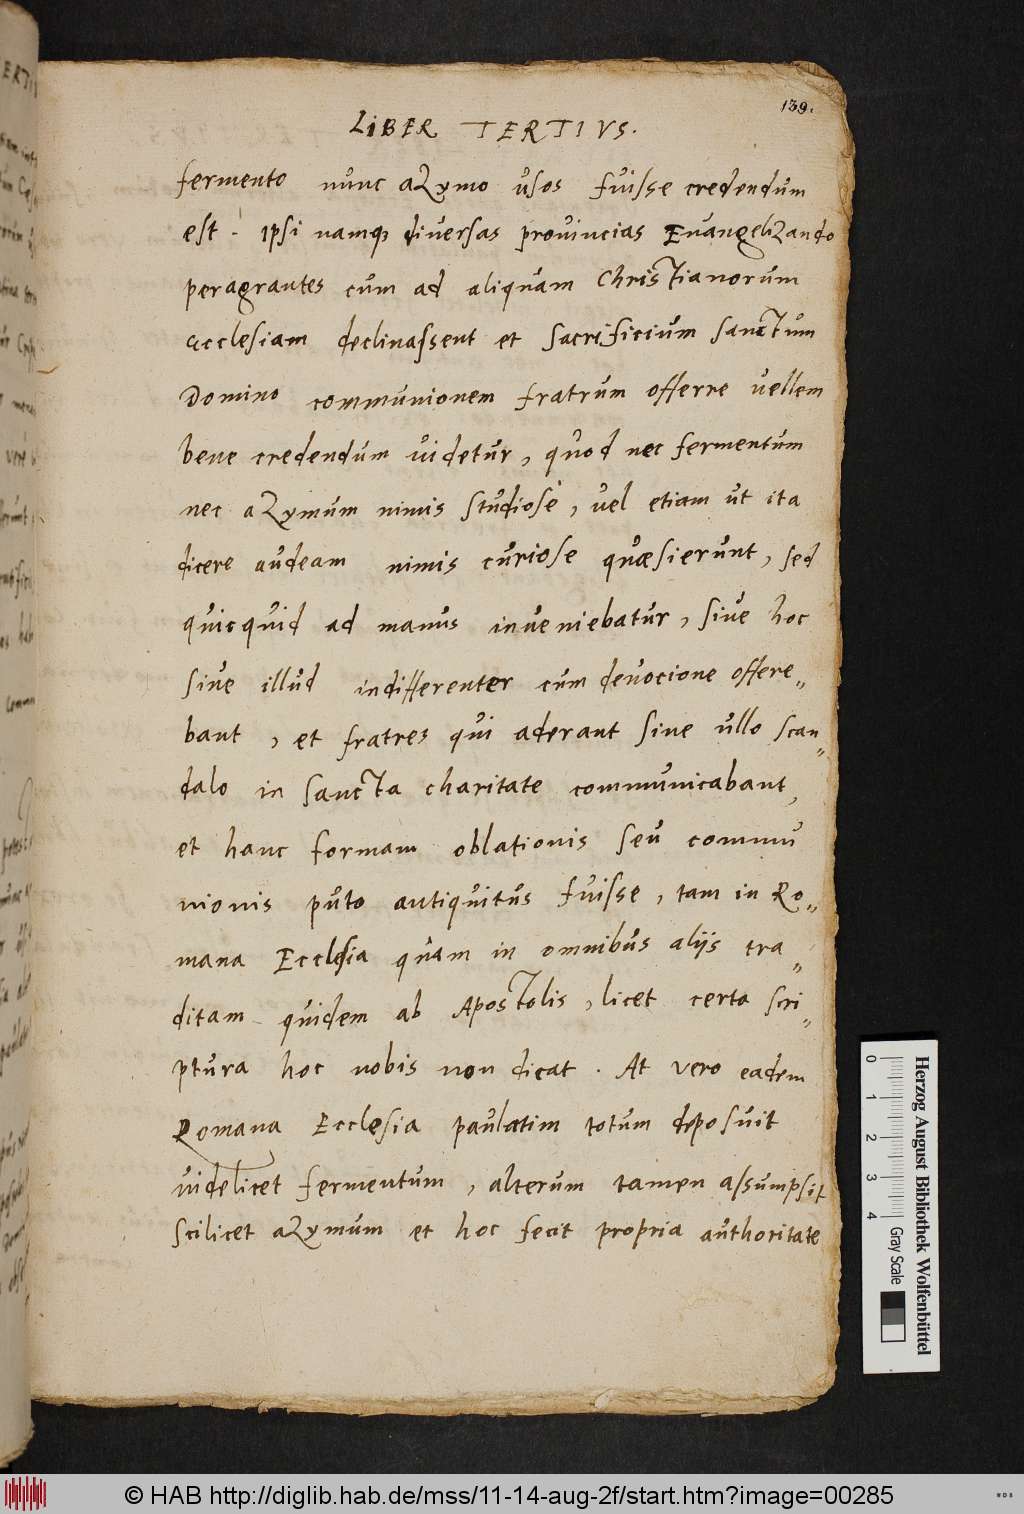 139.
LIBER TERTIVS.
fermento nunc aZymo usos fuisse credendum
est. Ipsi namq3 diversas provincias EvangeliZando
peragrantes cum ad aliquam Christianorum
ecclesiam declinassent et sacrificium sanctum
Domino communionem fratrum offerre vellem
bene credendum videtur, quod nec fermentum
nec aZymum nimis studiosè, vel etiam ut ita
dicere audeam nimis curiose quæsierunt, sed
quicquid ad manus inveniebatur, sive hoc
sive illud indifferenter cum devocione offere„
bant, et fratres qui aderant sine ullo scan„
dalo in sancta charitate communicabant,
et hanc formam oblationis seu commu
nionis puto antiquitus fuisse, tam in Ro„
mana Ecclesia quam in omnibus alijs tra„
ditam quidem ab Apostolis, licet certa scri„
ptura hoc nobis non dicat. At vero eadem
Romana Ecclesia paulatim totum deposuit
videlicet fermentum, alterum tamen assumpsit
scilicet aZymum et hoc fecit propria authoritate
0 1 2 3 4
Gray Scale
Herzog August Bibliothek Wolfenbüttel
© HAB http://diglib.hab.de/mss/11-14-aug-2f/start.htm?image=00285